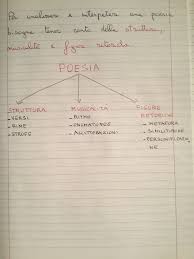 Per analizzare e interpretare una poesia
bisogna tener conto della struttura,
musicalità e figure retoriche
POESIA
STRUTTURA MUSICALITÀ FIGURE
RETORICHE
- VERSI - RITMO - METAFORA
- RIME - ONOMATOPEE - SIMILITUDINE
- STROFE - ALLITTERAZIONI - PERSONIFICAZIO
NE